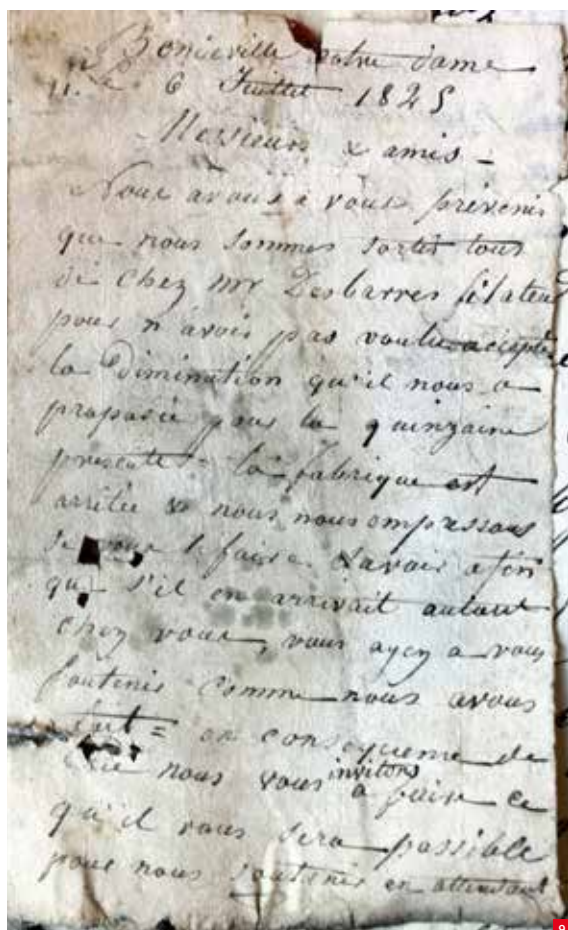 Bonneville Notre dame
Le 6 Juillet 1825
Messieurs & amis -
Nous avons à vous prévenir
que nous sommes sortis tous
de chez Mr Desbarres filateur
pour n'avoir pas voulu accepter
la Diminution qu'il nous a
proposée pour la quinzaine
presente - la fabrique est
arritée & nous nous empressons
de vous le faire savoir afin
que s'il en arrivait autant
chez vous, vous ayez a vous
soutenir comme nous avons
fait = en consequence de
nous vous invitons a faire ce
qu'il vous sera possible
pour nous soutenir en attendant
9